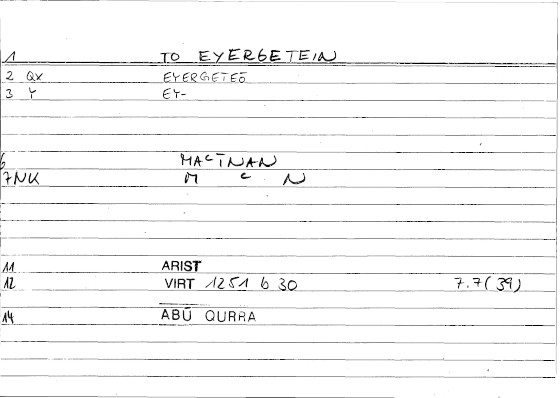 1 TO EYERGETEIN
2 QX EYERGETEŌ
3 Y EY-
6 MAcĪNAN
7NK M c N
11 ARIST
12 VIRT 1251 b 30 7.7(39)
14 ABŪ QURRA